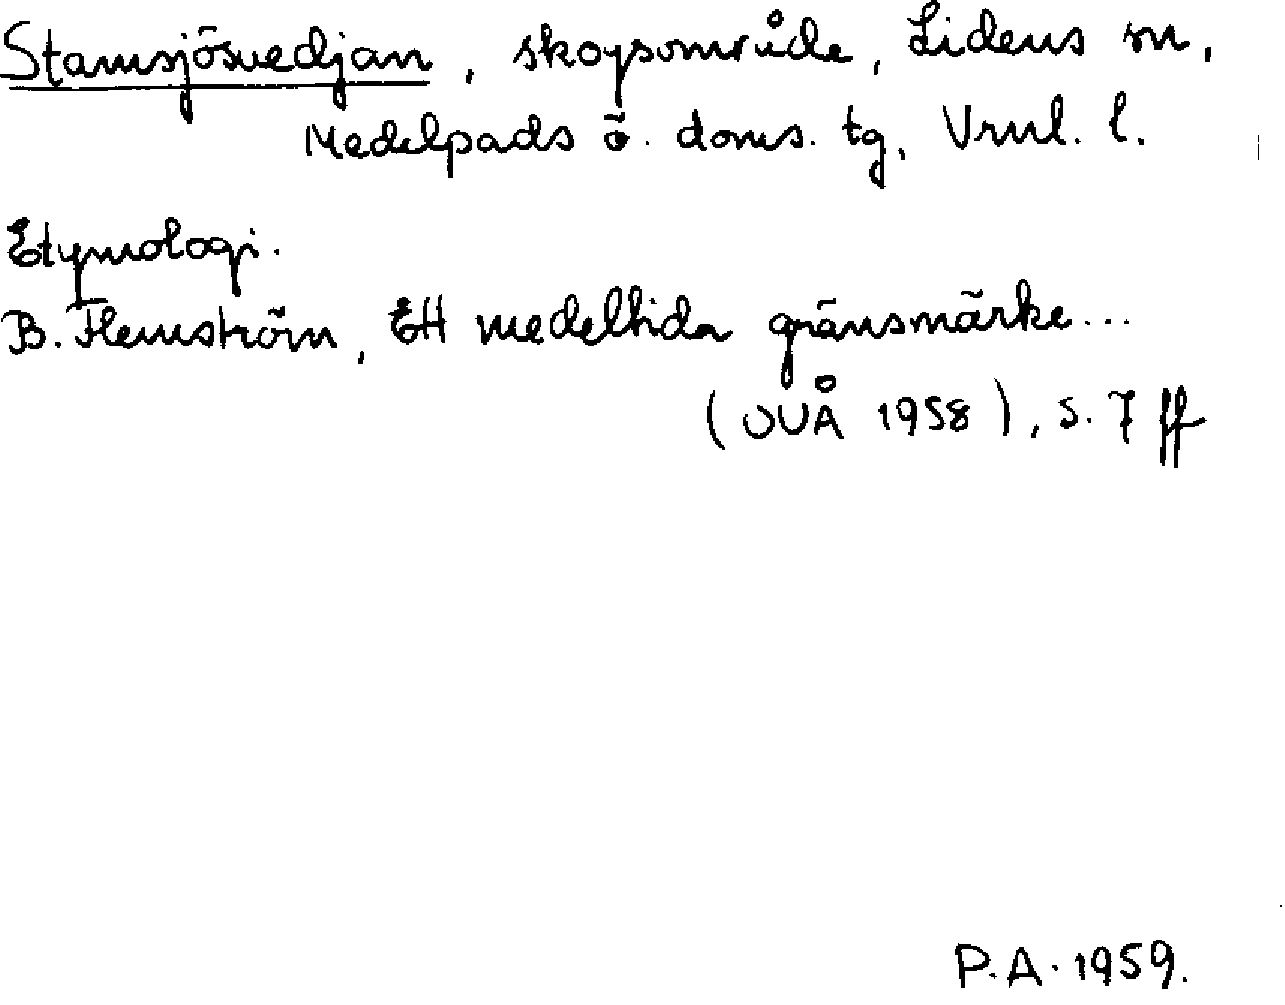 Stamsjösvedjan, skogsområde, Lidens sn,
Medelpads ö. doms. tg, Vrnl. l.
Etymologi.
B. Flemström, Ett medeltida gränsmärke...
(OUÅ 1958), s. 7 ff
P.A. 1959.